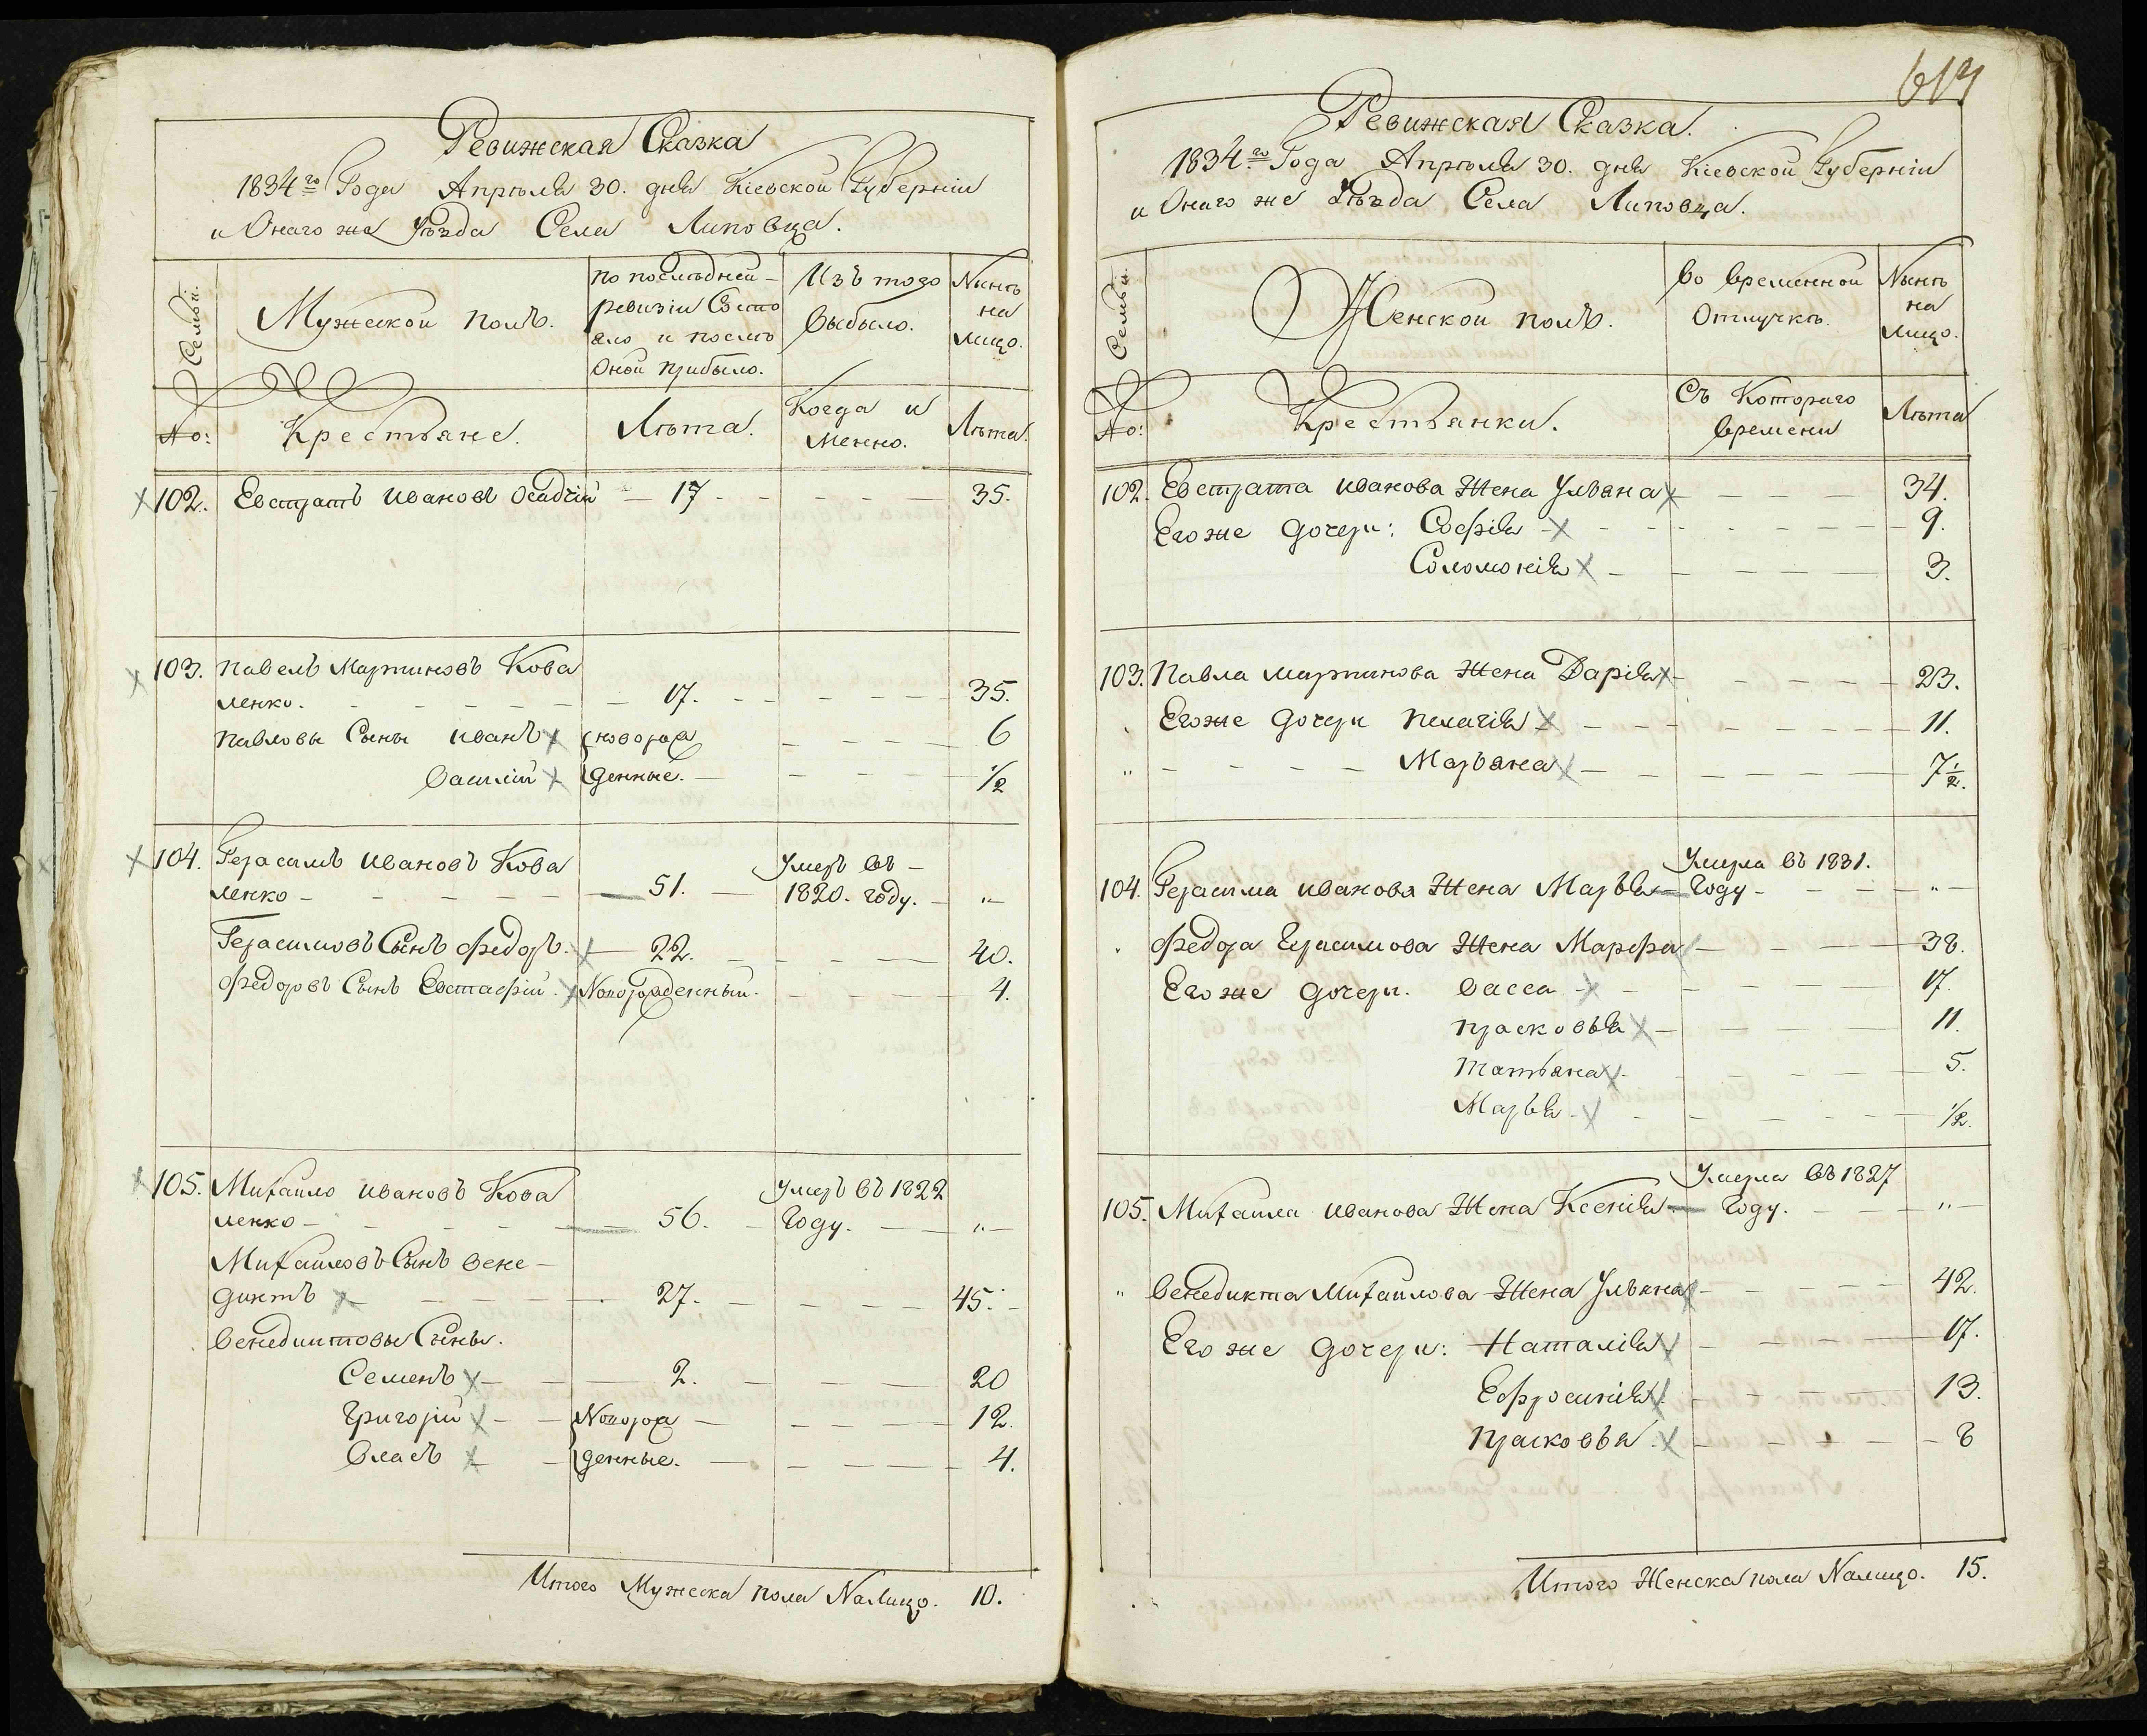 Ревижская Сказка
1834го Года Апрѣля 30. дня Кіевской Губерніи
и Онаго же Уѣзда Села Липовца.
Семьи.
Мужеской полъ.
по послѣдней
ревизіи Состо
яло и послѣ
Оной прибыло.
Изъ того
выбыло.
Нынѣ
на
лицо.
No:
Крестьяне.
Лѣта.
Когда и
менно.
Лѣта.
102. Евстратъ Ивановъ Осадчій 17 35.
103. Павелъ Мартиновъ Кова
ленко. 17. 35.
Павловы Сыны Иванъ новорож 6
Василій денные. 1/2
104. Герасимъ Ивановъ Кова Умеръ въ
ленко 51. 1820. году. "
Герасимовъ Сынъ Федоръ. 22. 40.
Федоровъ Сынъ Евстафій. Новорожденный. 4.
105. Михайло Ивановъ Кова Умеръ въ 1822
ленко 56. Году. "
Михайловъ Сынъ Вене
диктъ 27. 45.
Венедиктовы Сыны.
Семенъ 2. 20
Григорій Новорож 12.
Власъ денные. 4.
Итого Мужеска пола Налицо. 10.
614
Ревижская Сказка.
1834го Года Апрѣля 30. дня Кіевской Губерніи
и Онаго же Уѣзда Села Липовца.
Семьи.
Женской полъ.
во временной
Отлучкѣ.
Нынѣ
на
лицо.
No:
Крестьянки.
Съ Котораго
времени
Лѣта
102. Евстрата Иванова Жена Ульяна 34.
Его же дочери: Софія 9.
Соломонія 3.
103. Павла Мартинова Жена Дарія 23.
Его же дочери Пелагія 11.
" Марьяна 7 1/2.
Умерла въ 1831.
104. Герасима Иванова Жена Марья Году "
Федора Герасимова Жена Марфа 38.
Его же дочери. Васса 17.
Прасковья 11.
Татьяна 5.
Марья 1/2.
Умерла въ 1827
105. Михайла Иванова Жена Ксенія Году. "
" Венедикта Михайлова Жена Ульяна 42.
Его же дочери: Наталія 17.
Ефросинія 13.
Прасковья 8
Итого Женска пола Налицо. 15.